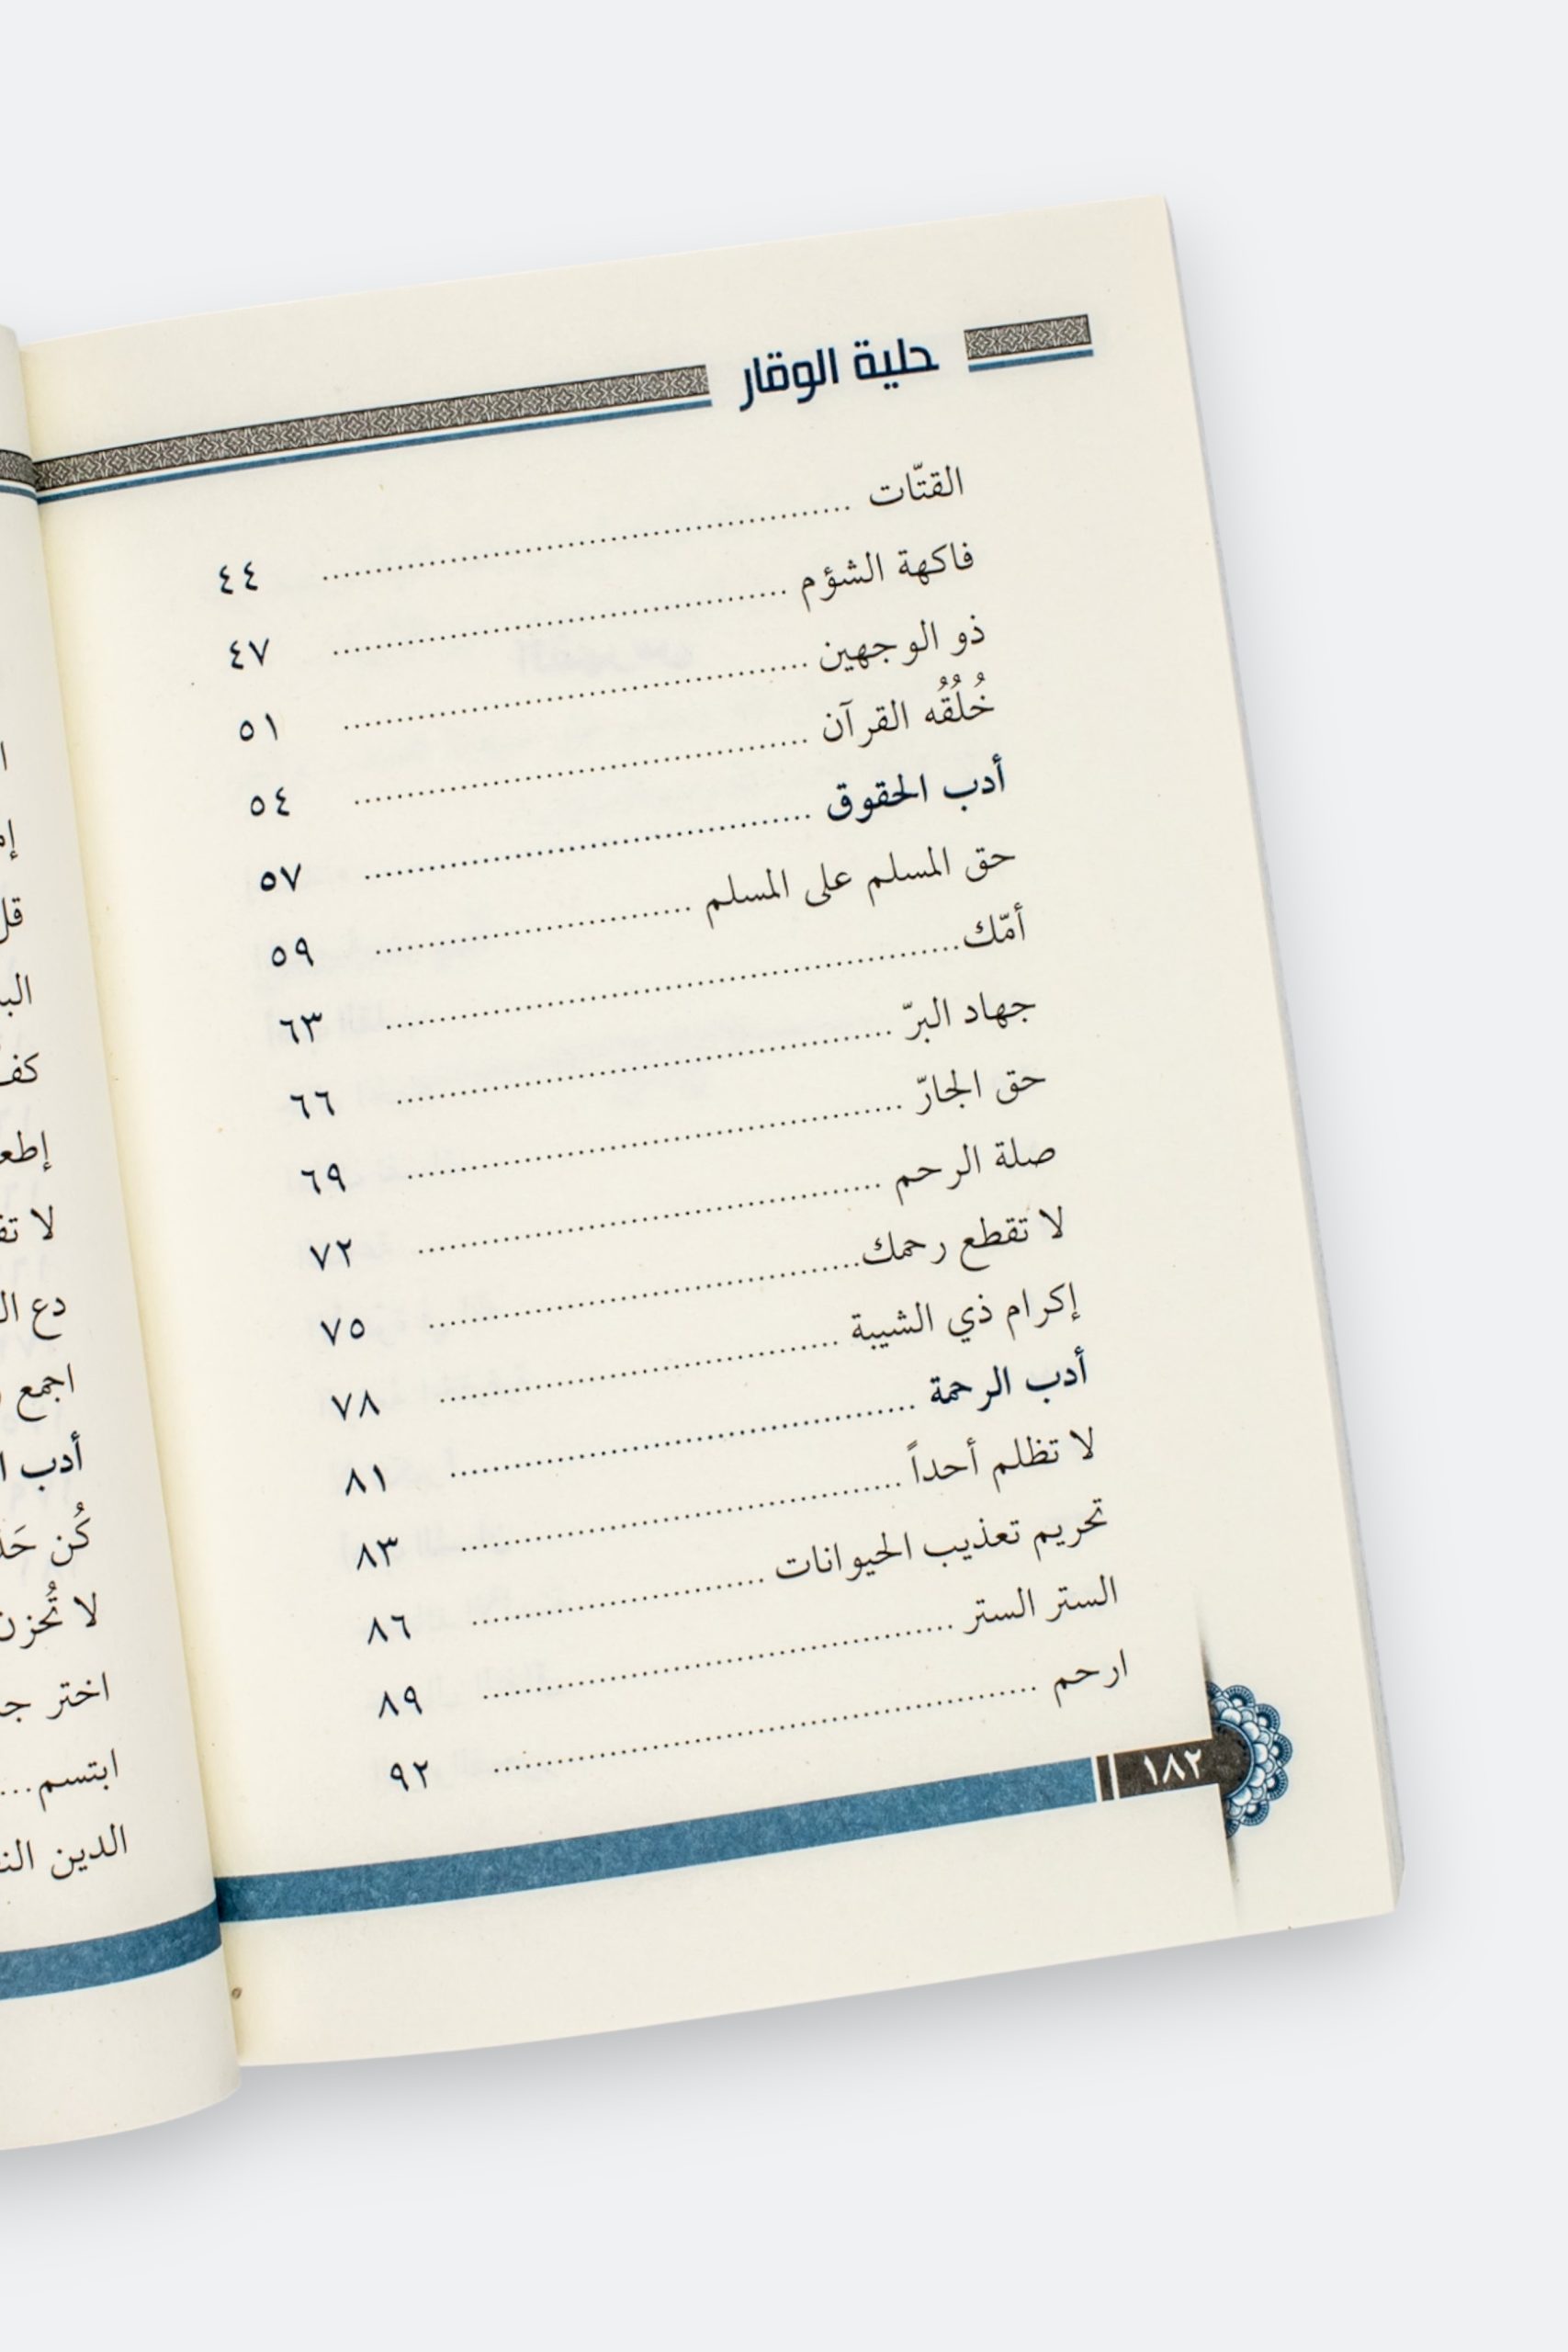 حلية الوقار
القتّات ................ ٤٤
فاكهة الشؤم ................ ٤٧
ذو الوجهين ................ ٥١
خُلُقُه القرآن ................ ٥٤
أدب الحقوق ................ ٥٧
حق المسلم على المسلم ................ ٥٩
أمّك ................ ٦٣
جهاد البرّ ................ ٦٦
حق الجارّ ................ ٦٩
صلة الرحم ................ ٧٢
لا تقطع رحمك ................ ٧٥
إكرام ذي الشيبة ................ ٧٨
أدب الرحمة ................ ٨١
لا تظلم أحداً ................ ٨٣
تحريم تعذيب الحيوانات ................ ٨٦
الستر الستر ................ ٨٩
ارحم ................ ٩٢
١٨٢
لا
دع
اجمع
أدب
كُن
لا
اختر
ابتسم...
الدين